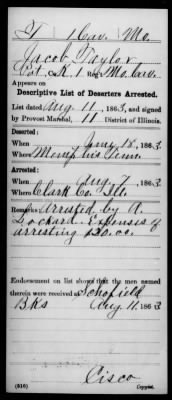 T 1 Cav. Mo.
Jacob Taylor
Pvt. K. 1 Reg Mo. Cav.
Appears on
Descriptive List of Deserters Arrested.
List dated Aug. 11, 1863, and signed
by Provost Marshal, 11 District of Illinois.
Deserted:
When 18, 1863
Where Memphis Tenn.
Arrested:
When Aug. 7, 1863
Where Clark Co. Ills.
Remarks: Arrested by A.
Lockard. Expenses of
arresting $30.00.
Endorsement on list shows that the men named
therein were received at Schofield
Bks Aug. 11, 1863
Cisco
(316) Copyist.